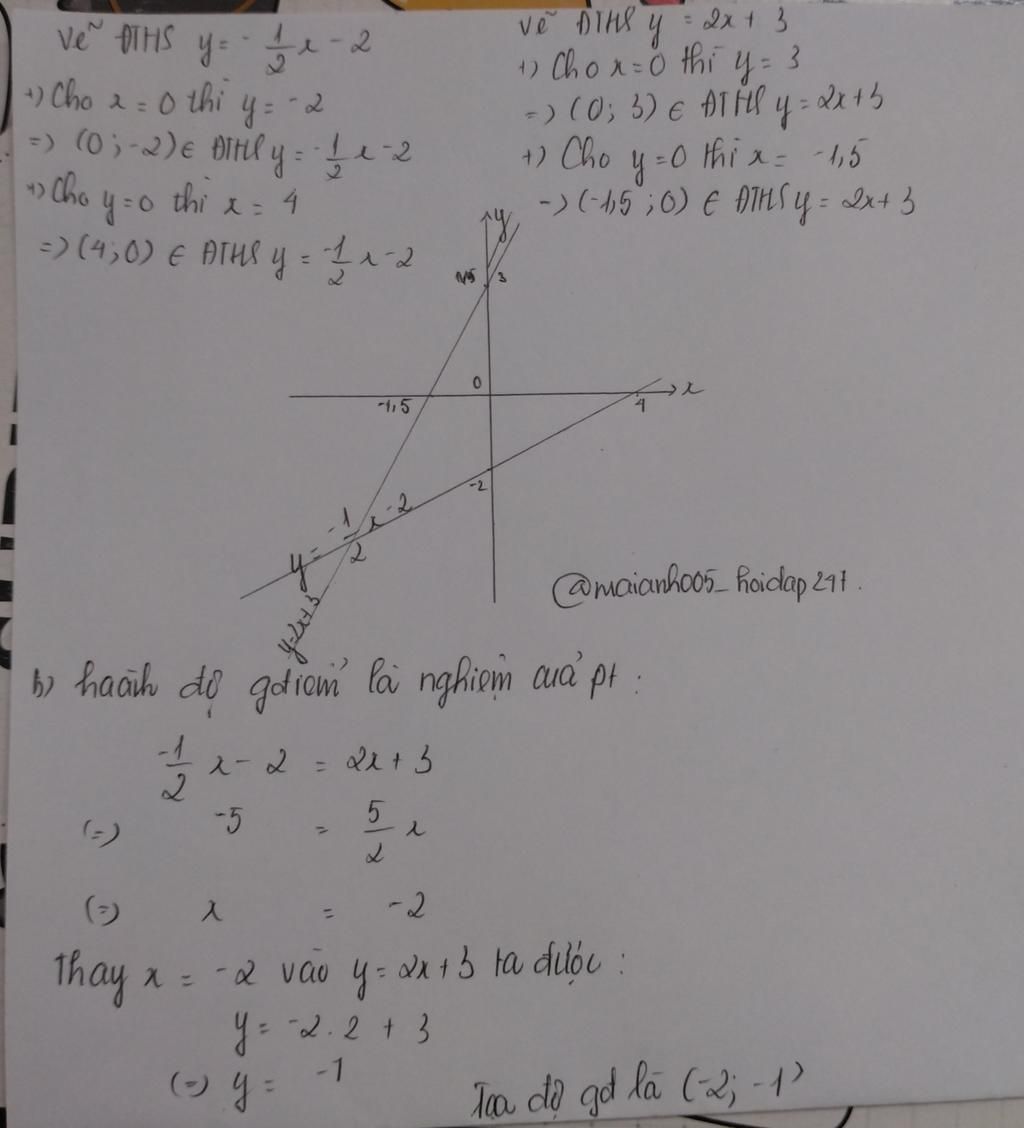 Vẽ ĐTHS y = -1/2 x - 2
+) Cho x = 0 thì y = -2
=> (0; -2) ∈ ĐTHS y = -1/2 x - 2
+) Cho y = 0 thì x = 4
=> (4; 0) ∈ ĐTHS y = -1/2 x - 2
Vẽ ĐTHS y = 2x + 3
+) Cho x = 0 thì y = 3
=> (0; 3) ∈ ĐTHS y = 2x + 3
+) Cho y = 0 thì x = -1,5
-> (-1,5; 0) ∈ ĐTHS y = 2x + 3
y
3
0
x
-1,5
4
-2
y = -1/2 x - 2
y = 2x + 3
@maianh005_hoidap247.
b) hoành độ gđiểm là nghiệm của pt :
-1/2 x - 2 = 2x + 3
(=) -5 = 5/2 x
(=) x = -2
Thay x = -2 vào y = 2x + 3 ta được :
y = -2 . 2 + 3
(=) y = -1
Tọa độ gđ là (-2; -1)